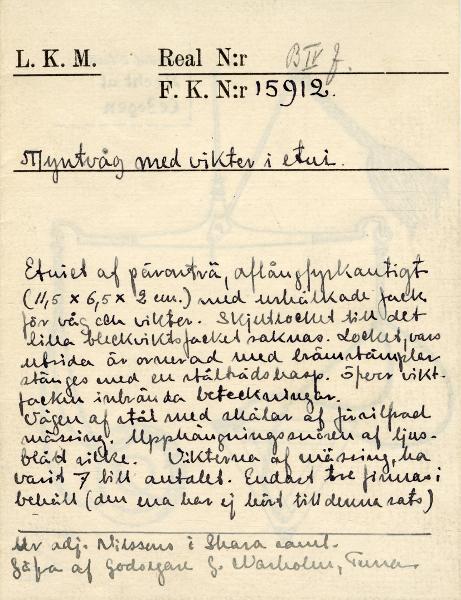 L. K. M. Real N:r B IV f.
F. K. N:r 15912.
Myntvåg med vikter i etui.
Etuiet af päronträ, aflångfyrkantigt
(11,5 x 6,5 x 2 cm.) med urhålkade fack
för våg och vikter. Skjutlocket till det
lilla bleckviktsfacket saknas. Locket, vars
utsida är ornerad med brännstämplar
stänges med en ståltrådshasp. Öfver vikt-
facken inbrända beteckningar.
Vågen af stål med skålar af
mässing. Upphängningssnören af ljus-
blått silke. Vikterna af mässing, ha
varit 7 till antalet. Endast tre finnas i
behåll (den ena har ej hört till denna sats)
Ur adj. Nilssons i Skara saml.
Gåfva af Godsägare G. Warholm, Tuna.